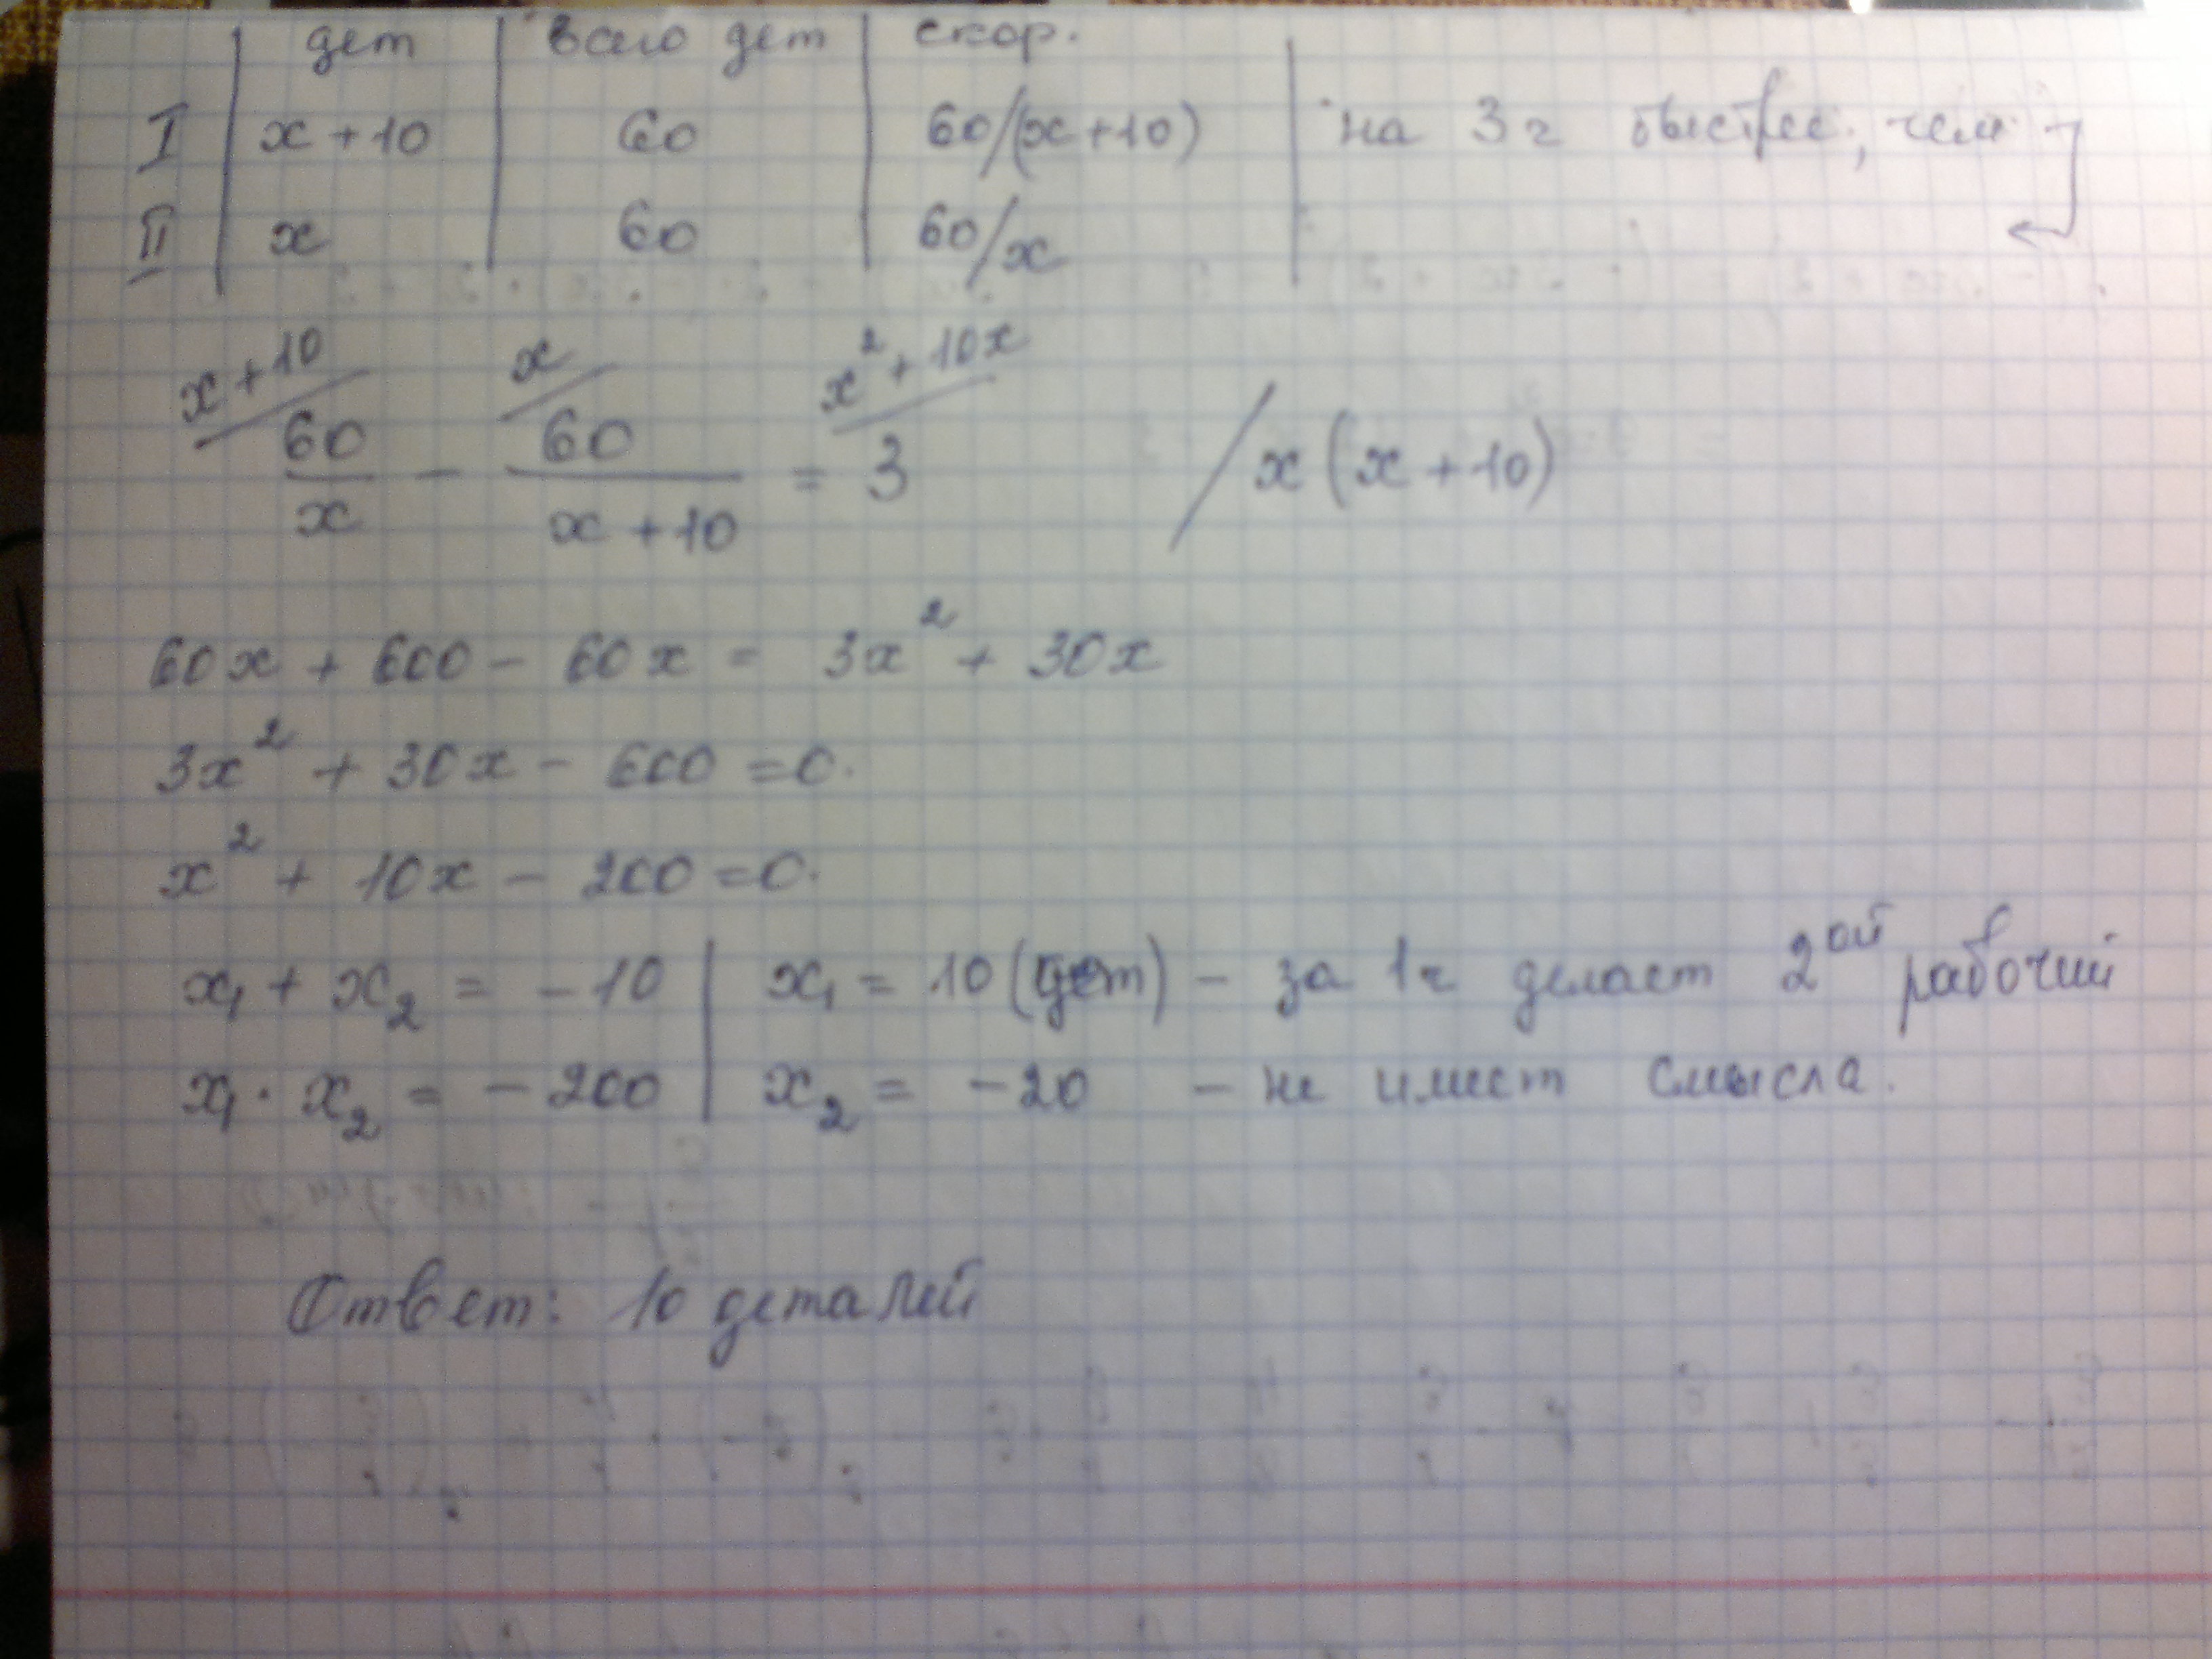 дет | всего дет | скор.
I | x+10 | 60 | 60/(x+10) | на 3ч быстрее, чем
II | x | 60 | 60/x
x+10/ x/ x²+10x/
60/x - 60/(x+10) = 3 /x(x+10)
60x + 600 - 60x = 3x² + 30x
3x² + 30x - 600 = 0.
x² + 10x - 200 = 0.
x₁ + x₂ = -10 | x₁ = 10 (дет) - за 1ч делает 2ой рабочий
x₁ · x₂ = -200 | x₂ = -20 - не имеет смысла.
Ответ: 10 деталей